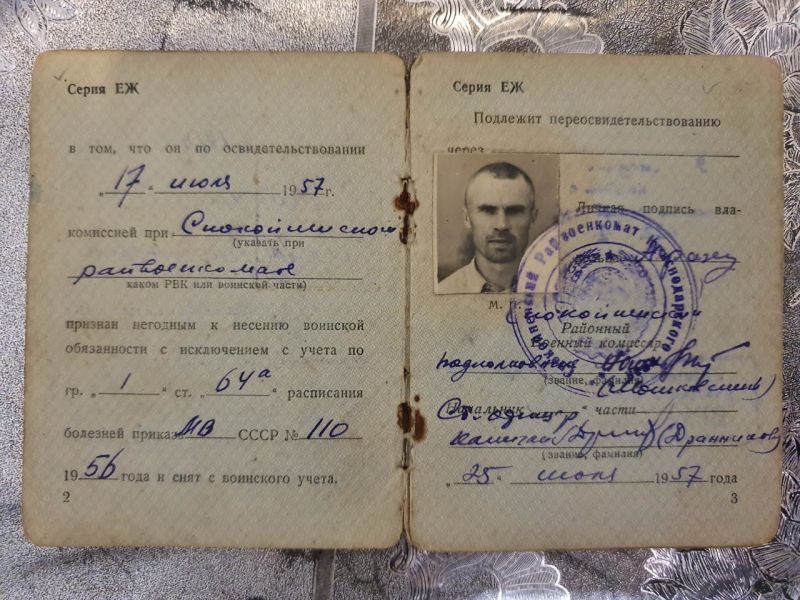 Серия ЕЖ
в том, что он по освидетельствовании
„17“ июля 1957 г.
комиссией при Спокойненском
(указать при
райвоенкомате
каком РВК или воинской части)
признан негодным к несению воинской
обязанности с исключением с учета по
гр. „1“ ст. 64а расписания
болезней приказа МВ СССР № 110
1956 года и снят с воинского учета.
2
Серия ЕЖ
Подлежит переосвидетельствованию
через
Личная подпись вла-
М. П.
Спокойненский
Районный
Военный комиссар
подполковник
(звание, фамилия)
Начальник части
Ст. офицер
капитан
(звание, фамилия)
„25“ июля 1957 года
3
Райвоенкомат Краснодарского